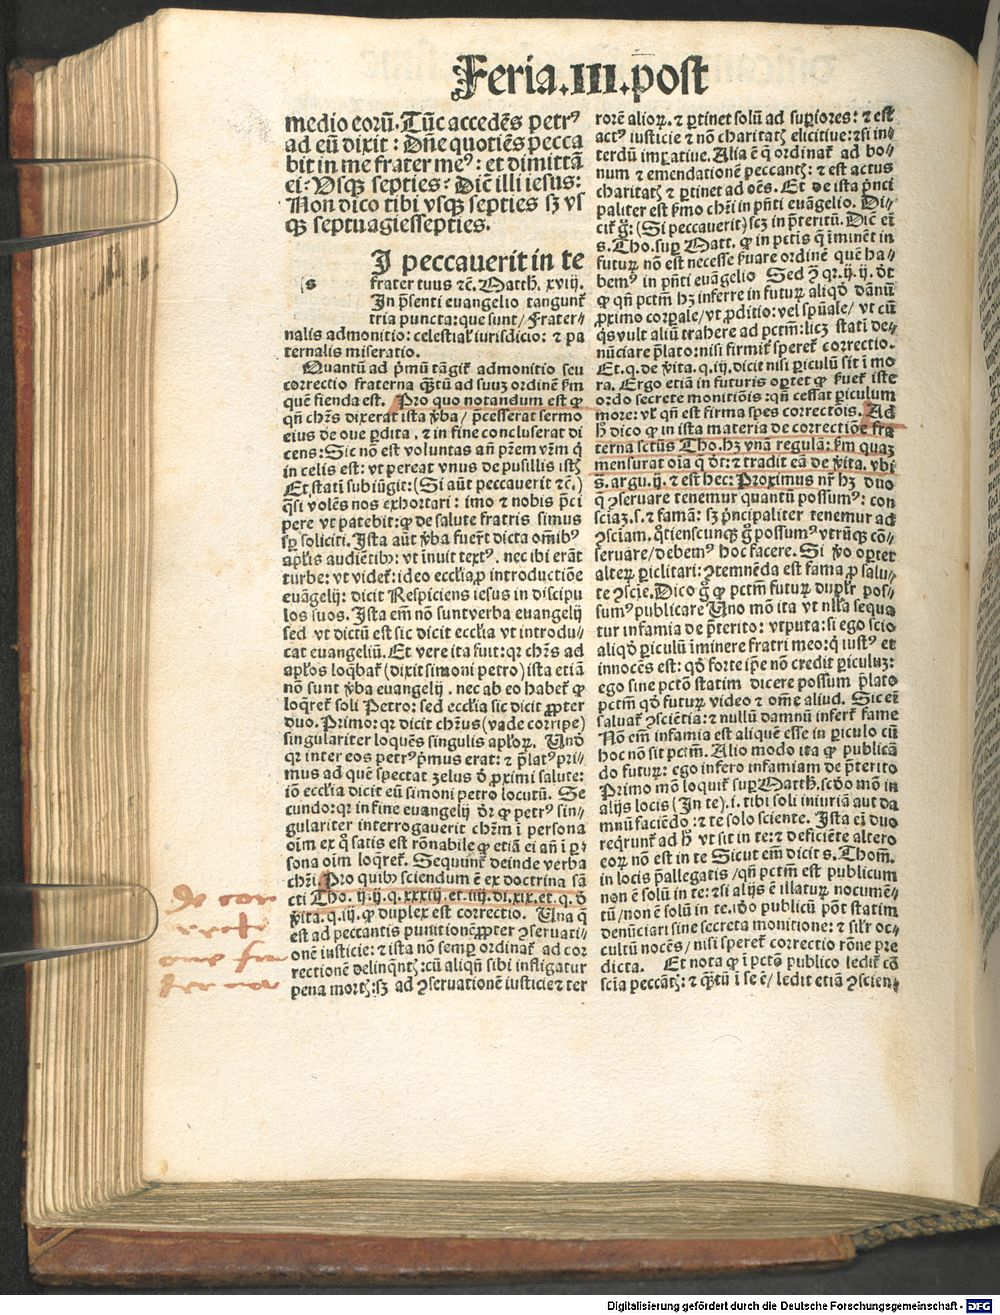 Feria.III.post
medio eorū. Tūc accedēs petrꝰ
ad eū dixit : Dñe quotiēs pecca
bit in me frater meꝰ: et dimittā
ei? Vsqꝫ septies? Dic̄ illi iesus:
Non dico tibi vsqꝫ septies sꝫ vs
qꝫ septuagiessepties.
s
I peccauerit in te
frater tuus ⁊c̄. Matth̄. xviij.
In p̄senti euangelio tangunt̄
tria puncta: que sunt/ Frater⸗
nalis admonitio: celestial̄ iurisdicio: ⁊ pa
ternalis miseratio.
Quantū ad p̄mū tāgit̄ admonitio seu
correctio fraterna qꝫtū ad suuꝫ ordinē ẜm
quē fienda est. Pro quo notandum est ꝙ
qn̄ chr̄s dixerat ista v̄ba/ p̄cesserat sermo
eius de oue ꝑdita . ⁊ in fine concluserat di
cens: Sic nō est voluntas añ p̄rem vr̄m q̇
in celis est: vt pereat vnus de pusillis istꝭ
Et stati subiūgit: (Si aūt peccauerit ⁊c̄.)
q̄si volēs nos exhortari: imo ⁊ nobis p̄ci
pere vt patebit: ꝙ de salute fratris simus
sꝑ soliciti. Ista aūt v̄ba fuer̄t dicta om̄ibꝰ
apl̄is audiētibꝰ: vt inuit textꝰ. nec ibi erāt
turbe: vt videt̄: ideo eccl̄ia ꝓ introductiōe
euāgelij: dicit Respiciens iesus in discipu
los suos. Ista em̄ nō sunt verba euangelij
sed vt dictū est sic dicit eccl̄ia vt introdu⸗
cat euangeliū. Et vere ita fuit: qꝛ chr̄s ad
apl̄os loq̄bat̄ (dixit simoni petro) ista etiā
nō sunt v̄ba euangelij . nec ab eo habet̄ ꝙ
loq̄ret̄ soli Petro: sed eccl̄ia sic dicit ꝓpter
duo. Primo: qꝛ dicit chr̄us (vade corripe)
singulariter loquēs singulis apl̄oꝝ. Vnd̄
qꝛ inter eos petrꝰ p̄mus erat: ⁊ p̄latꝰ pri⸗
mus ad quē spectat zelus d̄ ꝓximi salute:
iō eccl̄ia dicit eū simoni petro locutū. Se
cundo: qꝛ in fine euangelij d̄r ꝙ petrꝰ sin⸗
gulariter interrogauerit chr̄m ī persona
oīm ex q̊ satis est rōnabile ꝙ etiā ei añ ī ꝑ⸗
sona oīm loq̄ret̄. Sequunt̄ deinde verba
chr̄i. Pro quibꝰ sciendum ē ex doctrina sā
cti Tho. ij. ij. q. xxxiij. et. iiij. di. xix. et. q. d̄
v̄ita. q. iij. ꝙ duplex est correctio. Vna q̄
est ad peccantis punitionē ꝓpter ꝯseruati⸗
onē iusticie: ⁊ ista nō semꝑ ordinat̄ ad cor
rectionē delinq̄ntꝭ: cū aliqñ sibi infligatur
pena mortꝭ: sꝫ ad ꝯseruationē iusticie ⁊ ter
rorē alioꝝ. ⁊ ꝑtinet solū ad suꝑiores: ⁊ est
actꝰ iusticie ⁊ nō charitatꝭ elicitiue: ⁊ si in⸗
terdū imꝑatiue. Alia ē q̄ ordinat̄ ad bo⸗
num ⁊ emendationē peccantꝭ: ⁊ est actus
charitatꝭ ⁊ ꝑtinet ad oēs. Et de ista p̄nci
paliter est ẜmo chr̄i in p̄nti euāgelio. Di⸗
cit̄ ḡ: (Si peccauerit) scꝫ in p̄teritū. Dic̄ ei
s. Tho. suꝑ Matt. ꝙ in pctīs q̄ īminēt in
futuꝝ nō est necesse ẜuare ordinē quē ha⸗
bemꝰ in p̄nti euāgelio Sed ꝯ qr. ij. ij. d̄t
ꝙ qñ pctm̄ hꝫ inferre in futuꝝ aliqd̄ dānū
ꝓximo corꝑale/ vt ꝓditio: vel spūale/ vt cū
q̇s vult aliū trahere ad pctm̄: licꝫ stati de⸗
nūciare p̄lato: nisi firmit̄ speret̄ correctio.
Et. q. de v̄ita. q. iij. dicit nisi ꝑiculū sit ī mo
ra. Ergo etiā in futuris oꝑtet ꝙ ẜuet̄ iste
ordo secrete monitiōis: qñ cessat ꝑiculum
more: vl̄ qñ est firma spes correctōis. Ad
h̄ dico ꝙ in ista materia de correctiōe fra
terna sctūs Tho. hꝫ vnā regulā: ẜm quaꝫ
mensurat oīa q̄ d̄t: ⁊ tradit eā de v̄ita. vbi
s. argu. ij. ⁊ est hec: Proximus nr̄ hꝫ duo
q̄ ꝯseruare tenemur quantū possumꝰ: con
sciaꝫ. s. ⁊ famā: sꝫ p̄ncipaliter tenemur ad
ꝯsciam. q̊tienscunqꝫ ḡ possumꝰ vtrūqꝫ cō⸗
seruare/ debemꝰ hoc facere. Si v̊o oꝑtet
alteꝝ ꝑiclitari: ꝯtemnēda est fama ꝓ salu⸗
te ꝯscie. Dico ḡ ꝙ pctm̄ futuꝝ dupl̄r pos⸗
sumꝰ publicare Uno mō ita vt nlla sequa
tur infamia de p̄terito: vtputa: si ego scio
aliqd̄ ꝑiculū īminere fratri meo: q̇ iustꝰ et
innocēs est: qd̄ forte ip̄e nō credit ꝑiculuꝫ:
ego sine pctō statim dicere possum p̄lato
pctm̄ qd̄ futuꝝ video ⁊ om̄e aliud. Sic ei
saluat̄ ꝯsciētia: ⁊ nullū damnū infert̄ fame
Nō em̄ infamia est aliquē esse in ꝑiculo cū
hoc nō sit pctm̄. Alio modo ita ꝙ publicā
do futuꝝ: ego infero infamiam de p̄terito
Primo mō loquit̄ suꝑ Matth. scd̄o mō in
alijs locis (In te). i. tibi soli iniuriā aut da
mnū faciēdo: ⁊ te solo sciente. Ista ei duo
req̇runt̄ ad h̄ vt sit in te: ⁊ deficiēte altero
eoꝝ nō est in te Sicut em̄ dicit s. Thom̄.
in locis p̄allegatis / qñ pctm̄ est publicum
non ē solū in te: ⁊ si alijs ē illatuꝝ nocumē⸗
tū/ non ē solū in te. iō publicū pōt statim
denūciari sine secreta monitione: ⁊ sil̄r oc⸗
cultū nocēs/ nisi speret̄ correctio rōne pre
dicta. Et nota ꝙ ī pctō publico ledit̄ cō
scia peccātꝭ: ⁊ qꝫtū ī se ē/ ledit etiā ꝯscien⸗
de cor
recti
one fra
terna
Digitalisierung gefördert durch die Deutsche Forschungsgemeinschaft - DFG